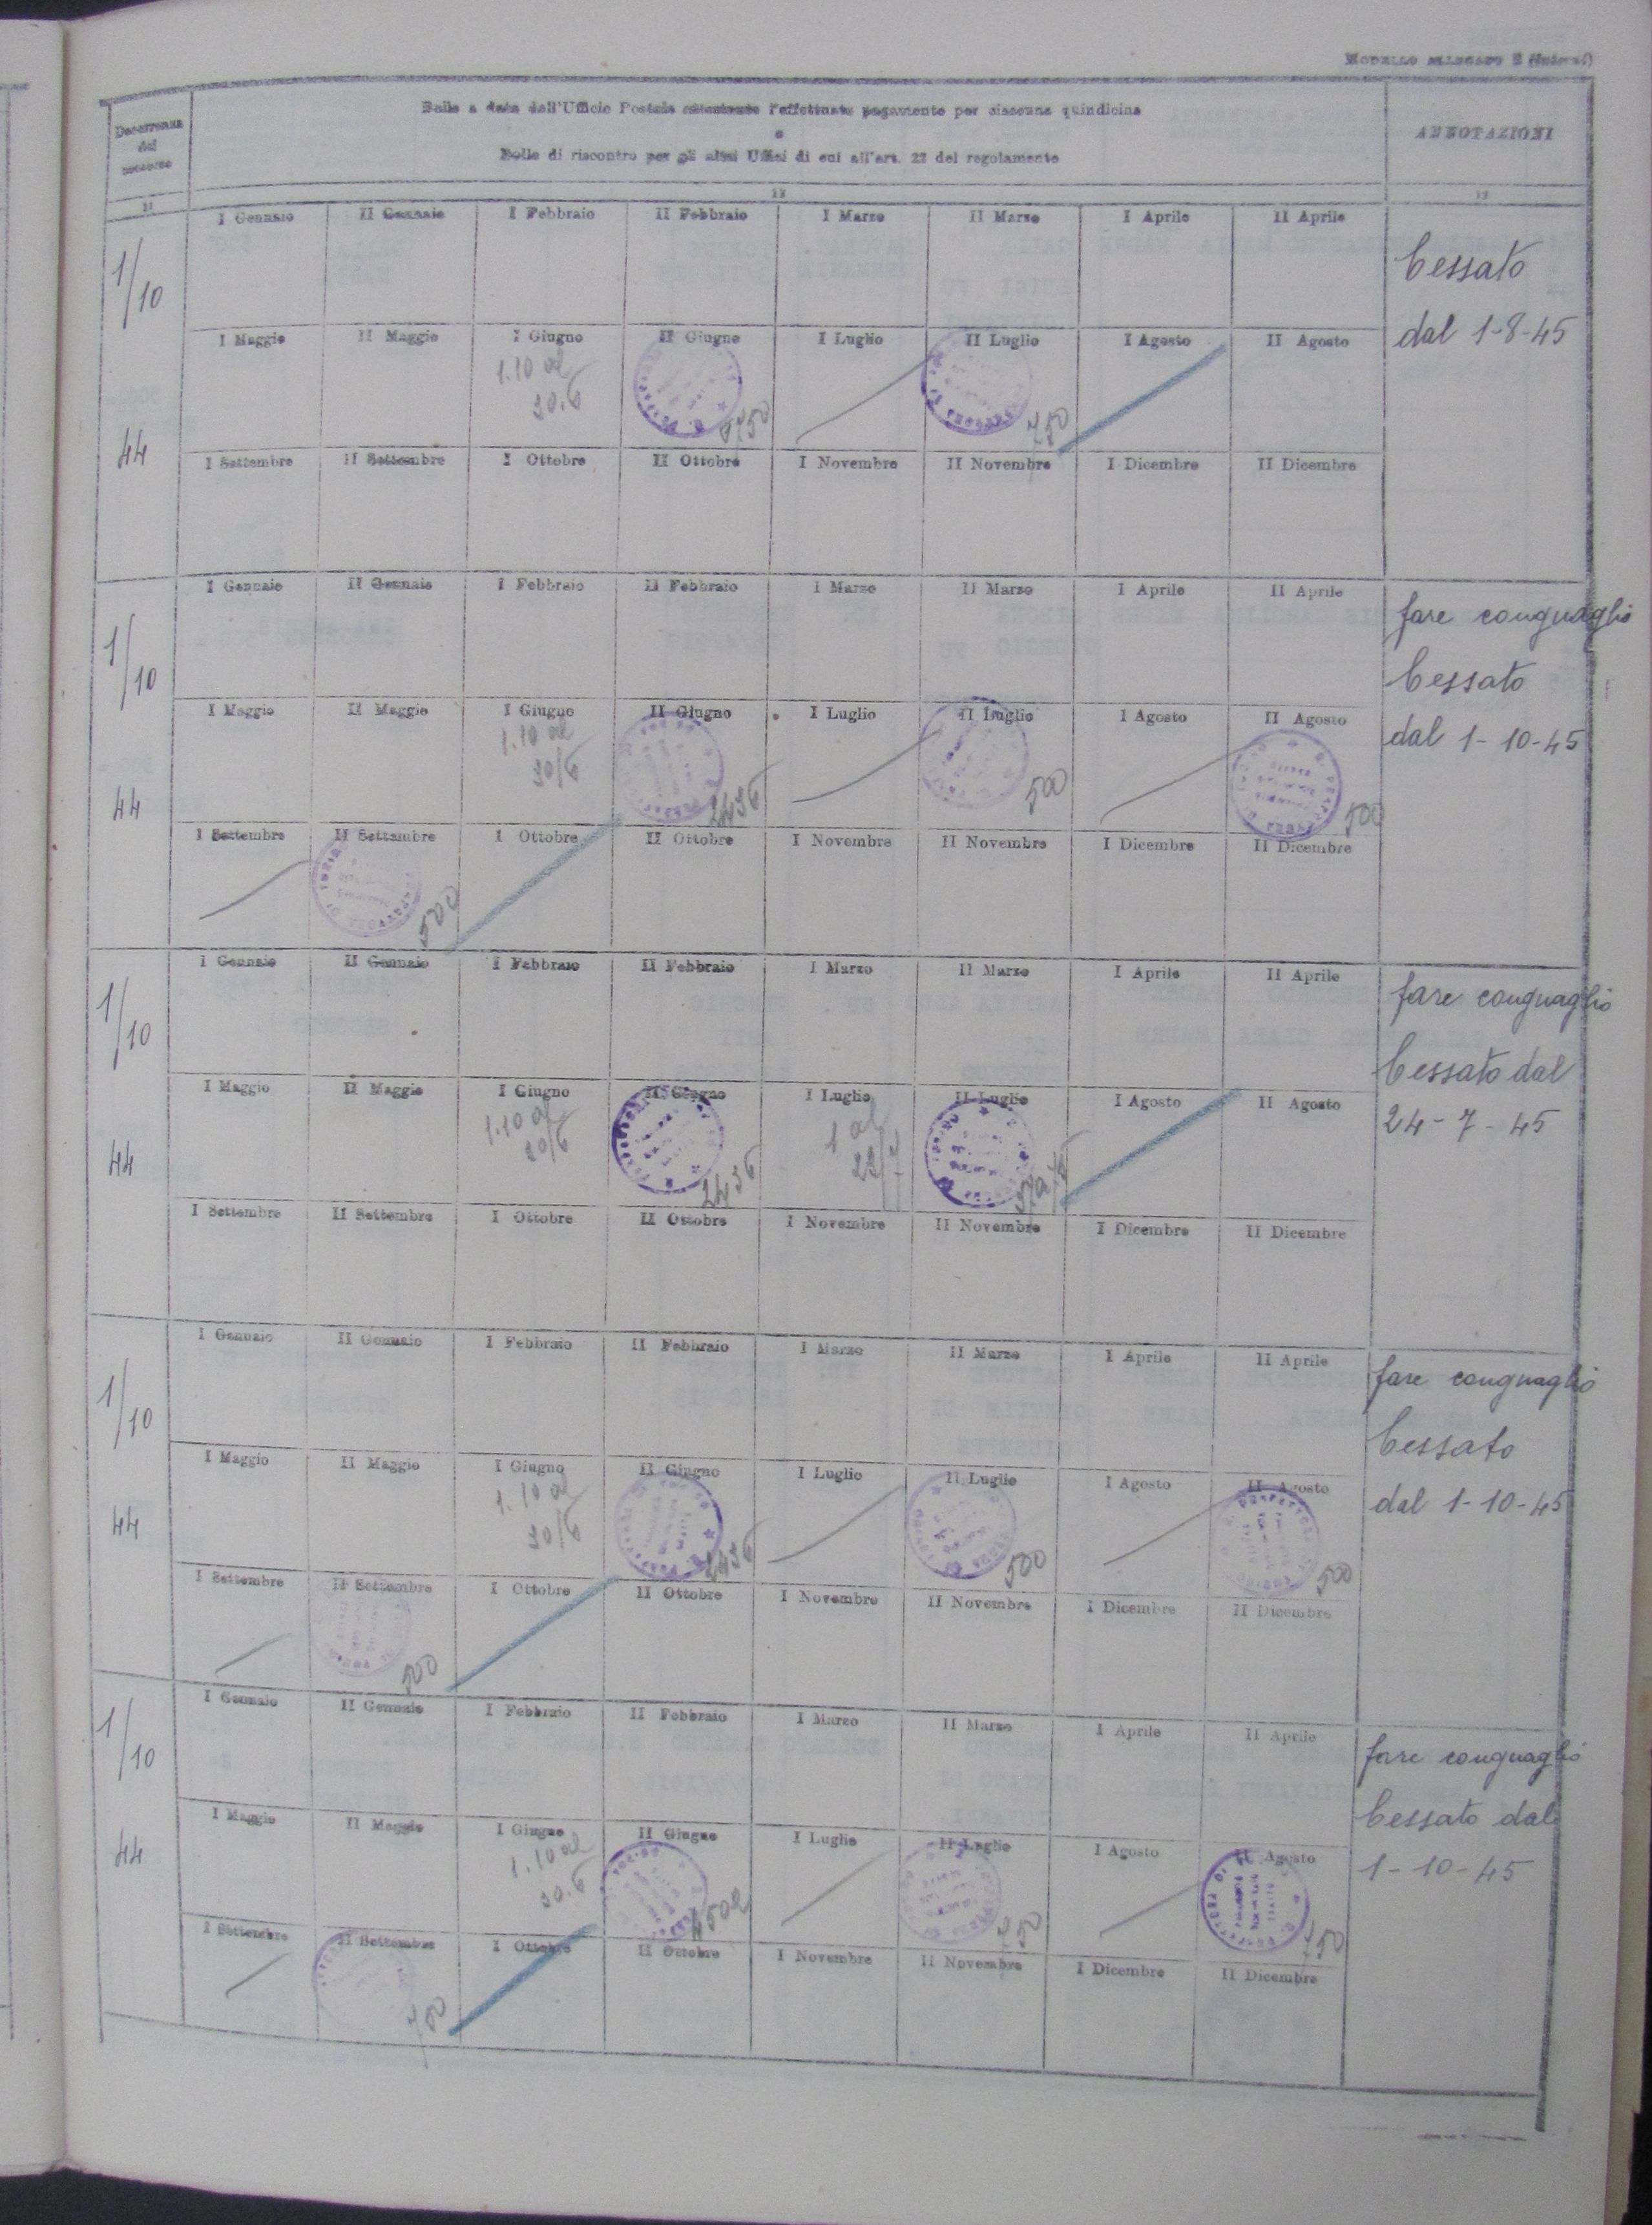 MODELLO ALLEGATO E
Decorrenza
del
soccorso
Bollo a data dell'Ufficio Postale attestante l'effettuato pagamento per ciascuna quindicina
e
Bollo di riscontro per gli altri Uffici di cui all'art. 22 del regolamento
ANNOTAZIONI
11
12
I Gennaio II Gennaio I Febbraio II Febbraio I Marzo II Marzo I Aprile II Aprile
1/10
44
Cessato
dal 1-8-45
I Maggio II Maggio I Giugno II Giugno I Luglio II Luglio I Agosto II Agosto
1.10 al
30.6
750
I Settembre II Settembre I Ottobre II Ottobre I Novembre II Novembre I Dicembre II Dicembre
I Gennaio II Gennaio I Febbraio II Febbraio I Marzo II Marzo I Aprile II Aprile
1/10
44
fare conguaglio
Cessato
dal 1-10-45
I Maggio II Maggio I Giugno II Giugno I Luglio II Luglio I Agosto II Agosto
1.10 al
30/6
2436
500
500
I Settembre II Settembre I Ottobre II Ottobre I Novembre II Novembre I Dicembre II Dicembre
500
I Gennaio II Gennaio I Febbraio II Febbraio I Marzo II Marzo I Aprile II Aprile
1/10
44
fare conguaglio
Cessato dal
24-7-45
I Maggio II Maggio I Giugno II Giugno I Luglio II Luglio I Agosto II Agosto
1.10 al
30/6
2436
1 al
I Settembre II Settembre I Ottobre II Ottobre I Novembre II Novembre I Dicembre II Dicembre
I Gennaio II Gennaio I Febbraio II Febbraio I Marzo II Marzo I Aprile II Aprile
1/10
44
fare conguaglio
Cessato
dal 1-10-45
I Maggio II Maggio I Giugno II Giugno I Luglio II Luglio I Agosto II Agosto
1.10 al
30/6
2436
500
500
I Settembre II Settembre I Ottobre II Ottobre I Novembre II Novembre I Dicembre II Dicembre
500
I Gennaio II Gennaio I Febbraio II Febbraio I Marzo II Marzo I Aprile II Aprile
1/10
44
fare conguaglio
Cessato dal
1-10-45
I Maggio II Maggio I Giugno II Giugno I Luglio II Luglio I Agosto II Agosto
1.10 al
30.6
750
750
I Settembre II Settembre I Ottobre II Ottobre I Novembre II Novembre I Dicembre II Dicembre
750